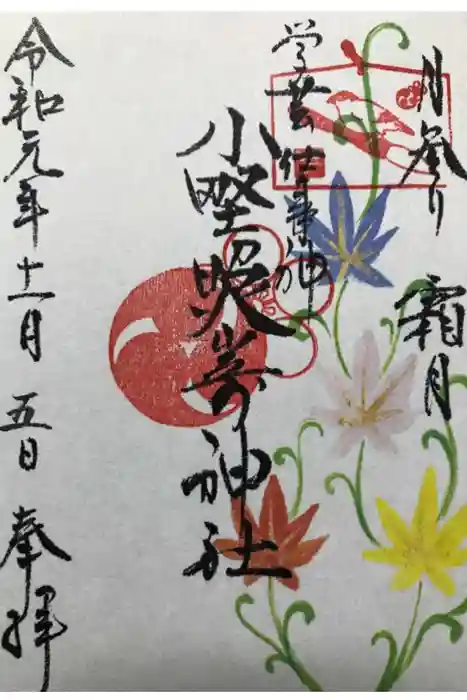 月参り 霜月
学芸仕事神
小野照崎神社
令和元年十一月 五日 奉拝